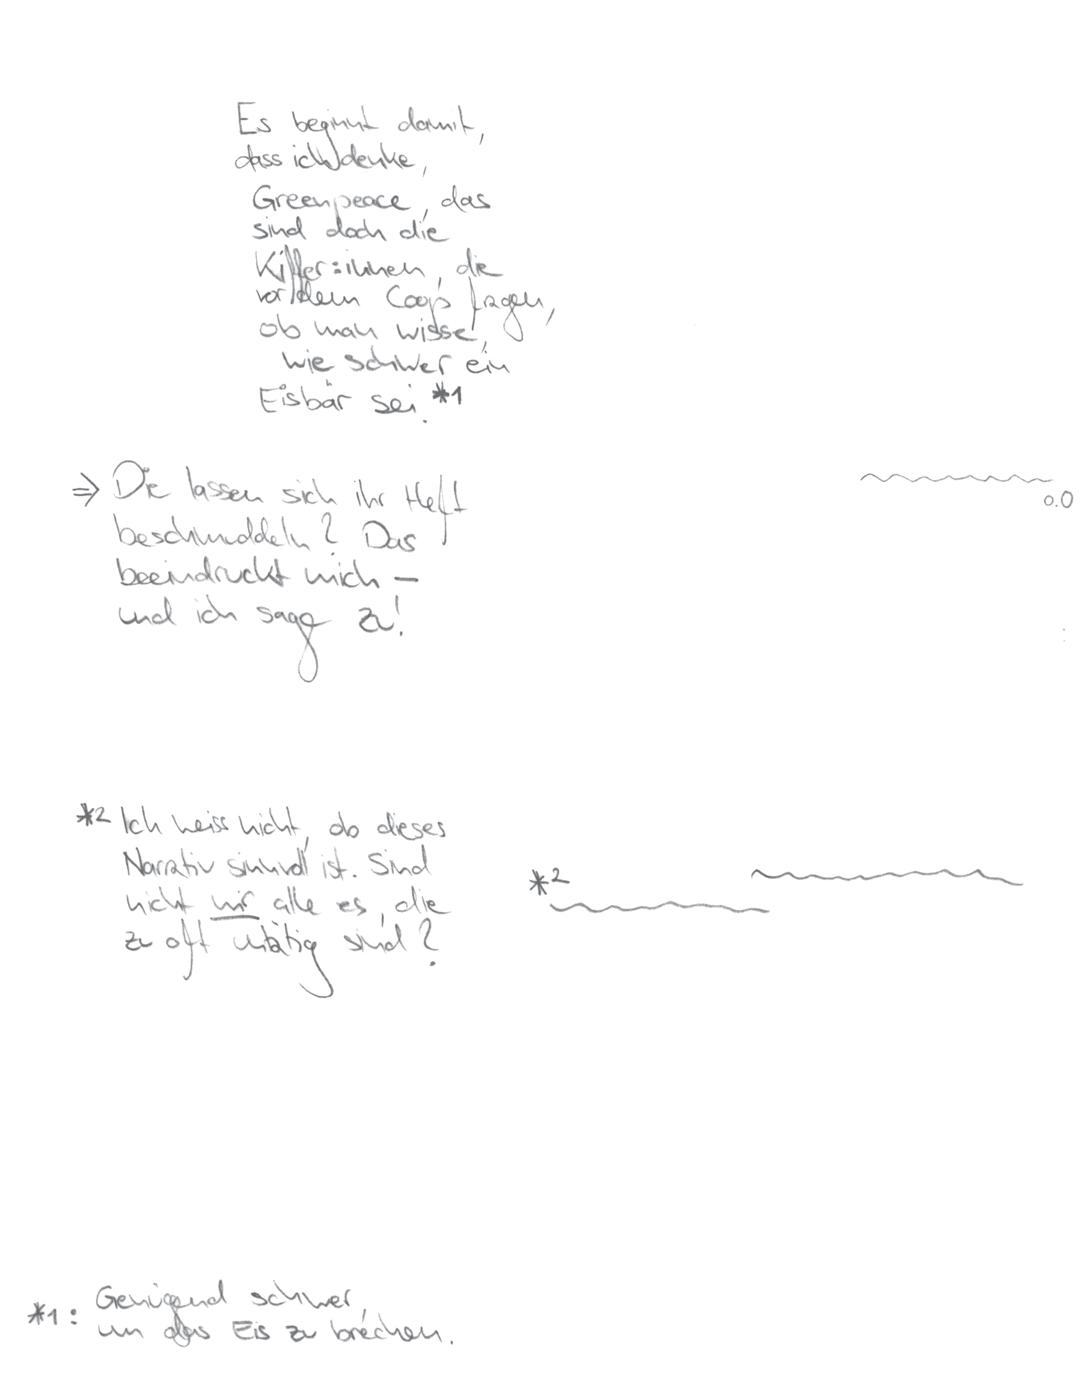 Es beginnt damit,
dass ich denke,
Greenpeace, das
sind doch die
Kiffer:innen, die
vor dem Coop fragen,
ob man wisse,
wie schwer ein
Eisbär sei. *1
⇒ Die lassen sich ihr Heft
beschmuddeln? Das
beeindruckt mich –
und ich sage zu!
o.O
*2 Ich weiss nicht, ob dieses
Narrativ sinnvoll ist. Sind
nicht wir alle es, die
zu oft untätig sind?
*2
*1: Genügend schwer,
um das Eis zu brechen.